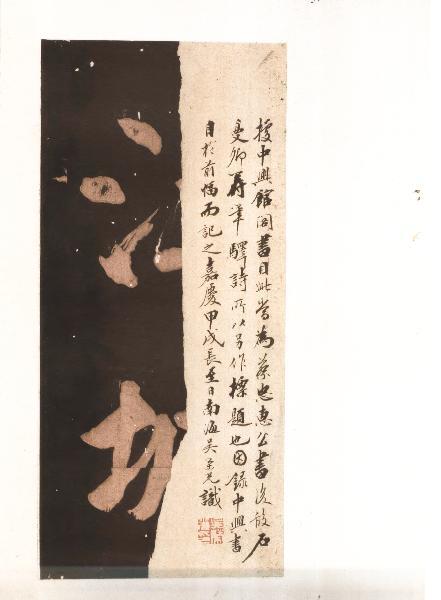 按中興館閣書目此當為蔡忠惠公書後放石
曼卿籌筆驛詩所以另作標題也因錄中興書
目於前幅而記之嘉慶甲戌長至日南海吳榮光識